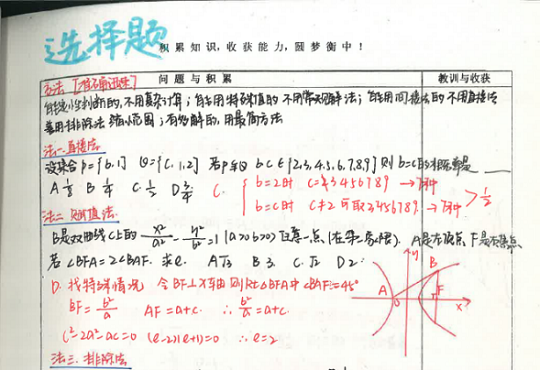 选择题
积累知识,收获能力,圆梦衡中!
问题与积累 教训与收获
方法 [准确迅速]
能定性判断的,不用复杂计算;能用特殊值的不用常规解法;能用间接法的不用直接法
善用排除法 缩小范围;有多解的,用最简方法
法一.直接法
设集合P={b,1} Q={C,1,2} 若P⊊Q b,C∈{2,3,4,5,6,7,8,9} 则b=C的概率是
A B C.½ D C. b=2时 C=3456789 →7种
b=C时 C≠2可取3456789 →7种 > ½
法二
B是双曲线C上的 x²/a² - y²/b² =1 (a>0 b>0) 一点,(在第一象限). A是左顶点 F是右焦点
若∠BFA=2∠BAF. 求e. A √3 B 3 C.√2 D 2
D. 找特殊情况 令BF⊥X轴 则Rt△BFA中∠BAF=45°
BF=b²/a AF=a+c. ∴ b²/a=a+c.
C²-2a²-ac=0 (e-2)(e+1)=0 ∴e=2
A O F B x y
法三.排除法